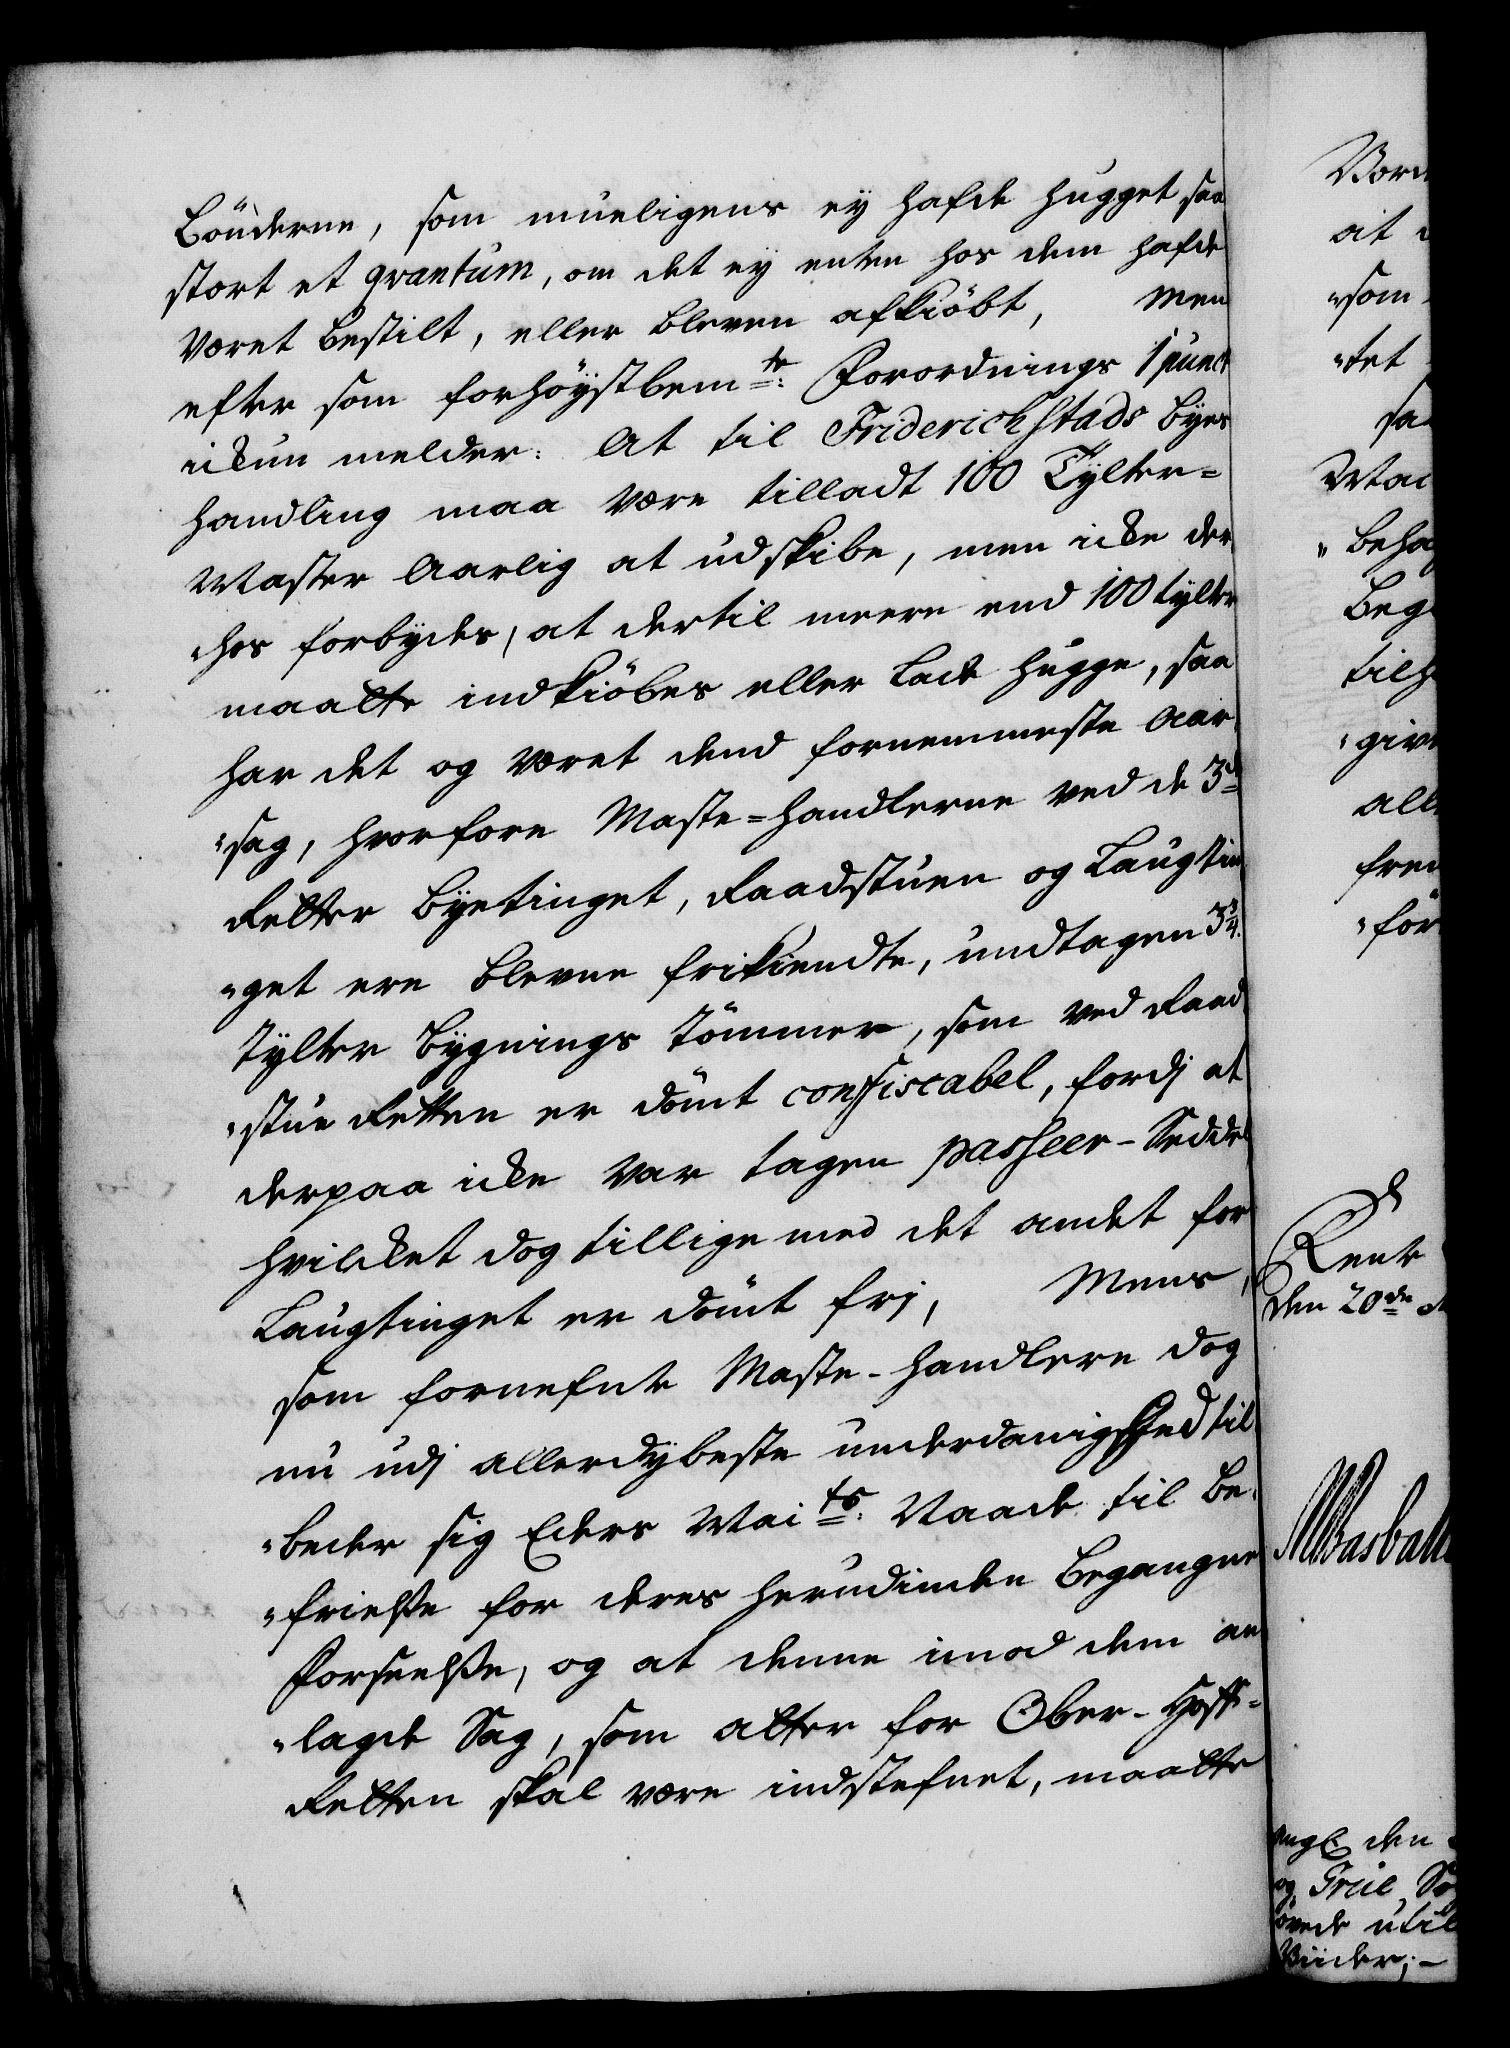 Bönderne, som mueligens ey hafde hugget saa
stort et qvantum, om det ey enten hos dem hafde
været bestilt, eller bleven afkiöbt, Men
efter som forhöystbem:te Forordnings 1 punct
ickun melder: At til Friderichstads Byes
handling maa være tilladt 100 Tylter-
Master Aarlig at udskibe, men icke der
"hos forbydes, at dertil meere end 100 tylter
maatte indkiöbes eller lade hugge, saa
har det og været dend fornemmeste Aar-
"sag, hvorfore Maste-handlerne ved de 3de
Retter Byetinget, Raadstuen og Laugtin
"get ere blevne frikiendte, undtagen 3 3/4
Tylter Bygnings Tömmer, som ved Raad
"stue Retten er dömt confiscabel, fordj at
derpaa icke var tagen passeer-Seddel
hvilcket dog tillige med det andet for
Laugtinget er dömt frj, Mens,
som fornefnte Maste-handlere dog
nu udj allerdybeste underdanighed til
"beder sig Eders Mai:ts Naade til be-
"frielse for deres herudinden begangne
Forseelse, og at denne imod dem an
"lagde Sag, som atter for Ober-Hoff-
Retten skal være indstefnet, maatte
at
"som
"tet
"beha
"giv
"för
Rente
den 20de
og True
Biider;-